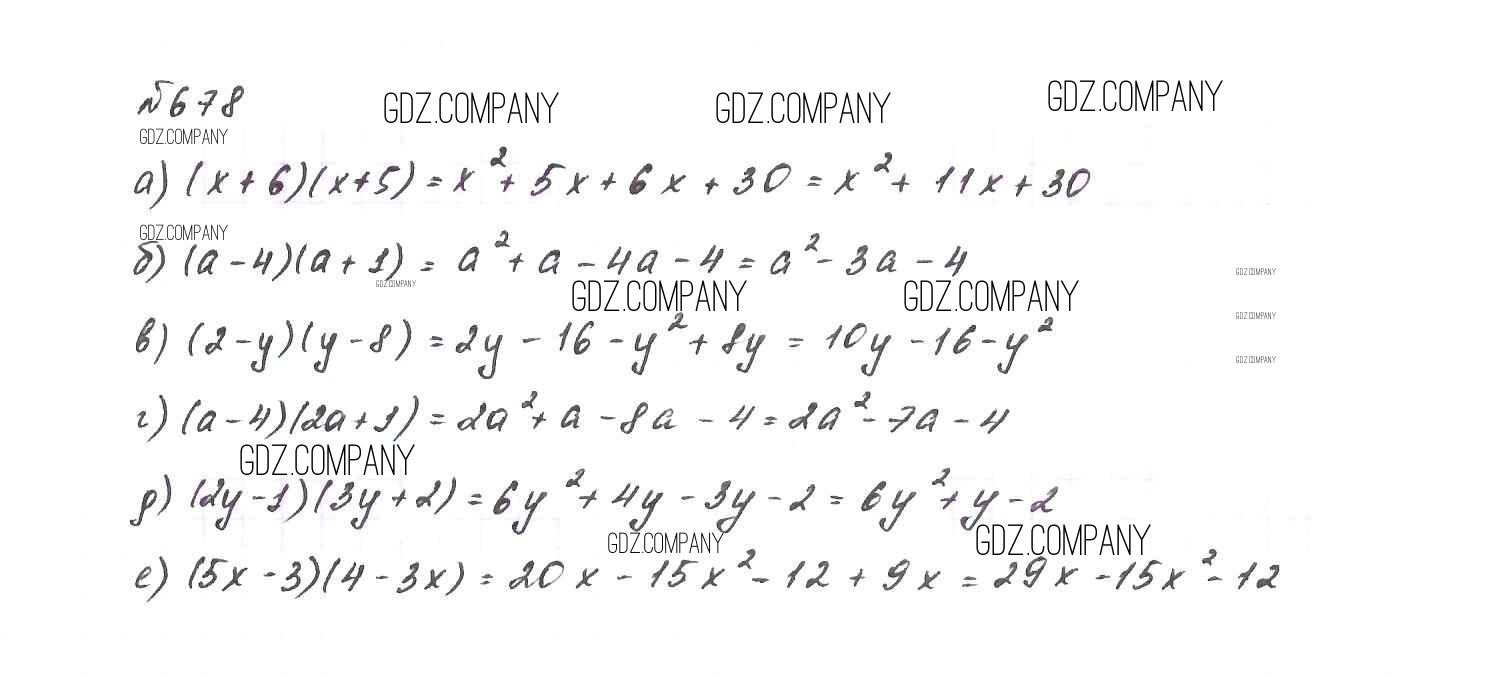 №678
GDZ.COMPANY GDZ.COMPANY GDZ.COMPANY
GDZ.COMPANY
а) (x+6)(x+5) = x²+ 5x + 6x + 30 = x²+ 11x + 30
GDZ.COMPANY
б) (a-4)(a+1) = a²+ a - 4a - 4 = a²- 3a - 4
GDZ.COMPANY
GDZ.COMPANY
GDZ.COMPANY GDZ.COMPANY
GDZ.COMPANY
в) (2-y)(y-8) = 2y - 16 - y²+ 8y = 10y - 16 - y²
GDZ.COMPANY
г) (a-4)(2a+1) = 2a²+ a - 8a - 4 = 2a²- 7a - 4
GDZ.COMPANY
д) (2y-1)(3y+2) = 6y²+ 4y - 3y - 2 = 6y²+ y - 2
GDZ.COMPANY GDZ.COMPANY
е) (5x-3)(4-3x) = 20x - 15x²- 12 + 9x = 29x - 15x²- 12